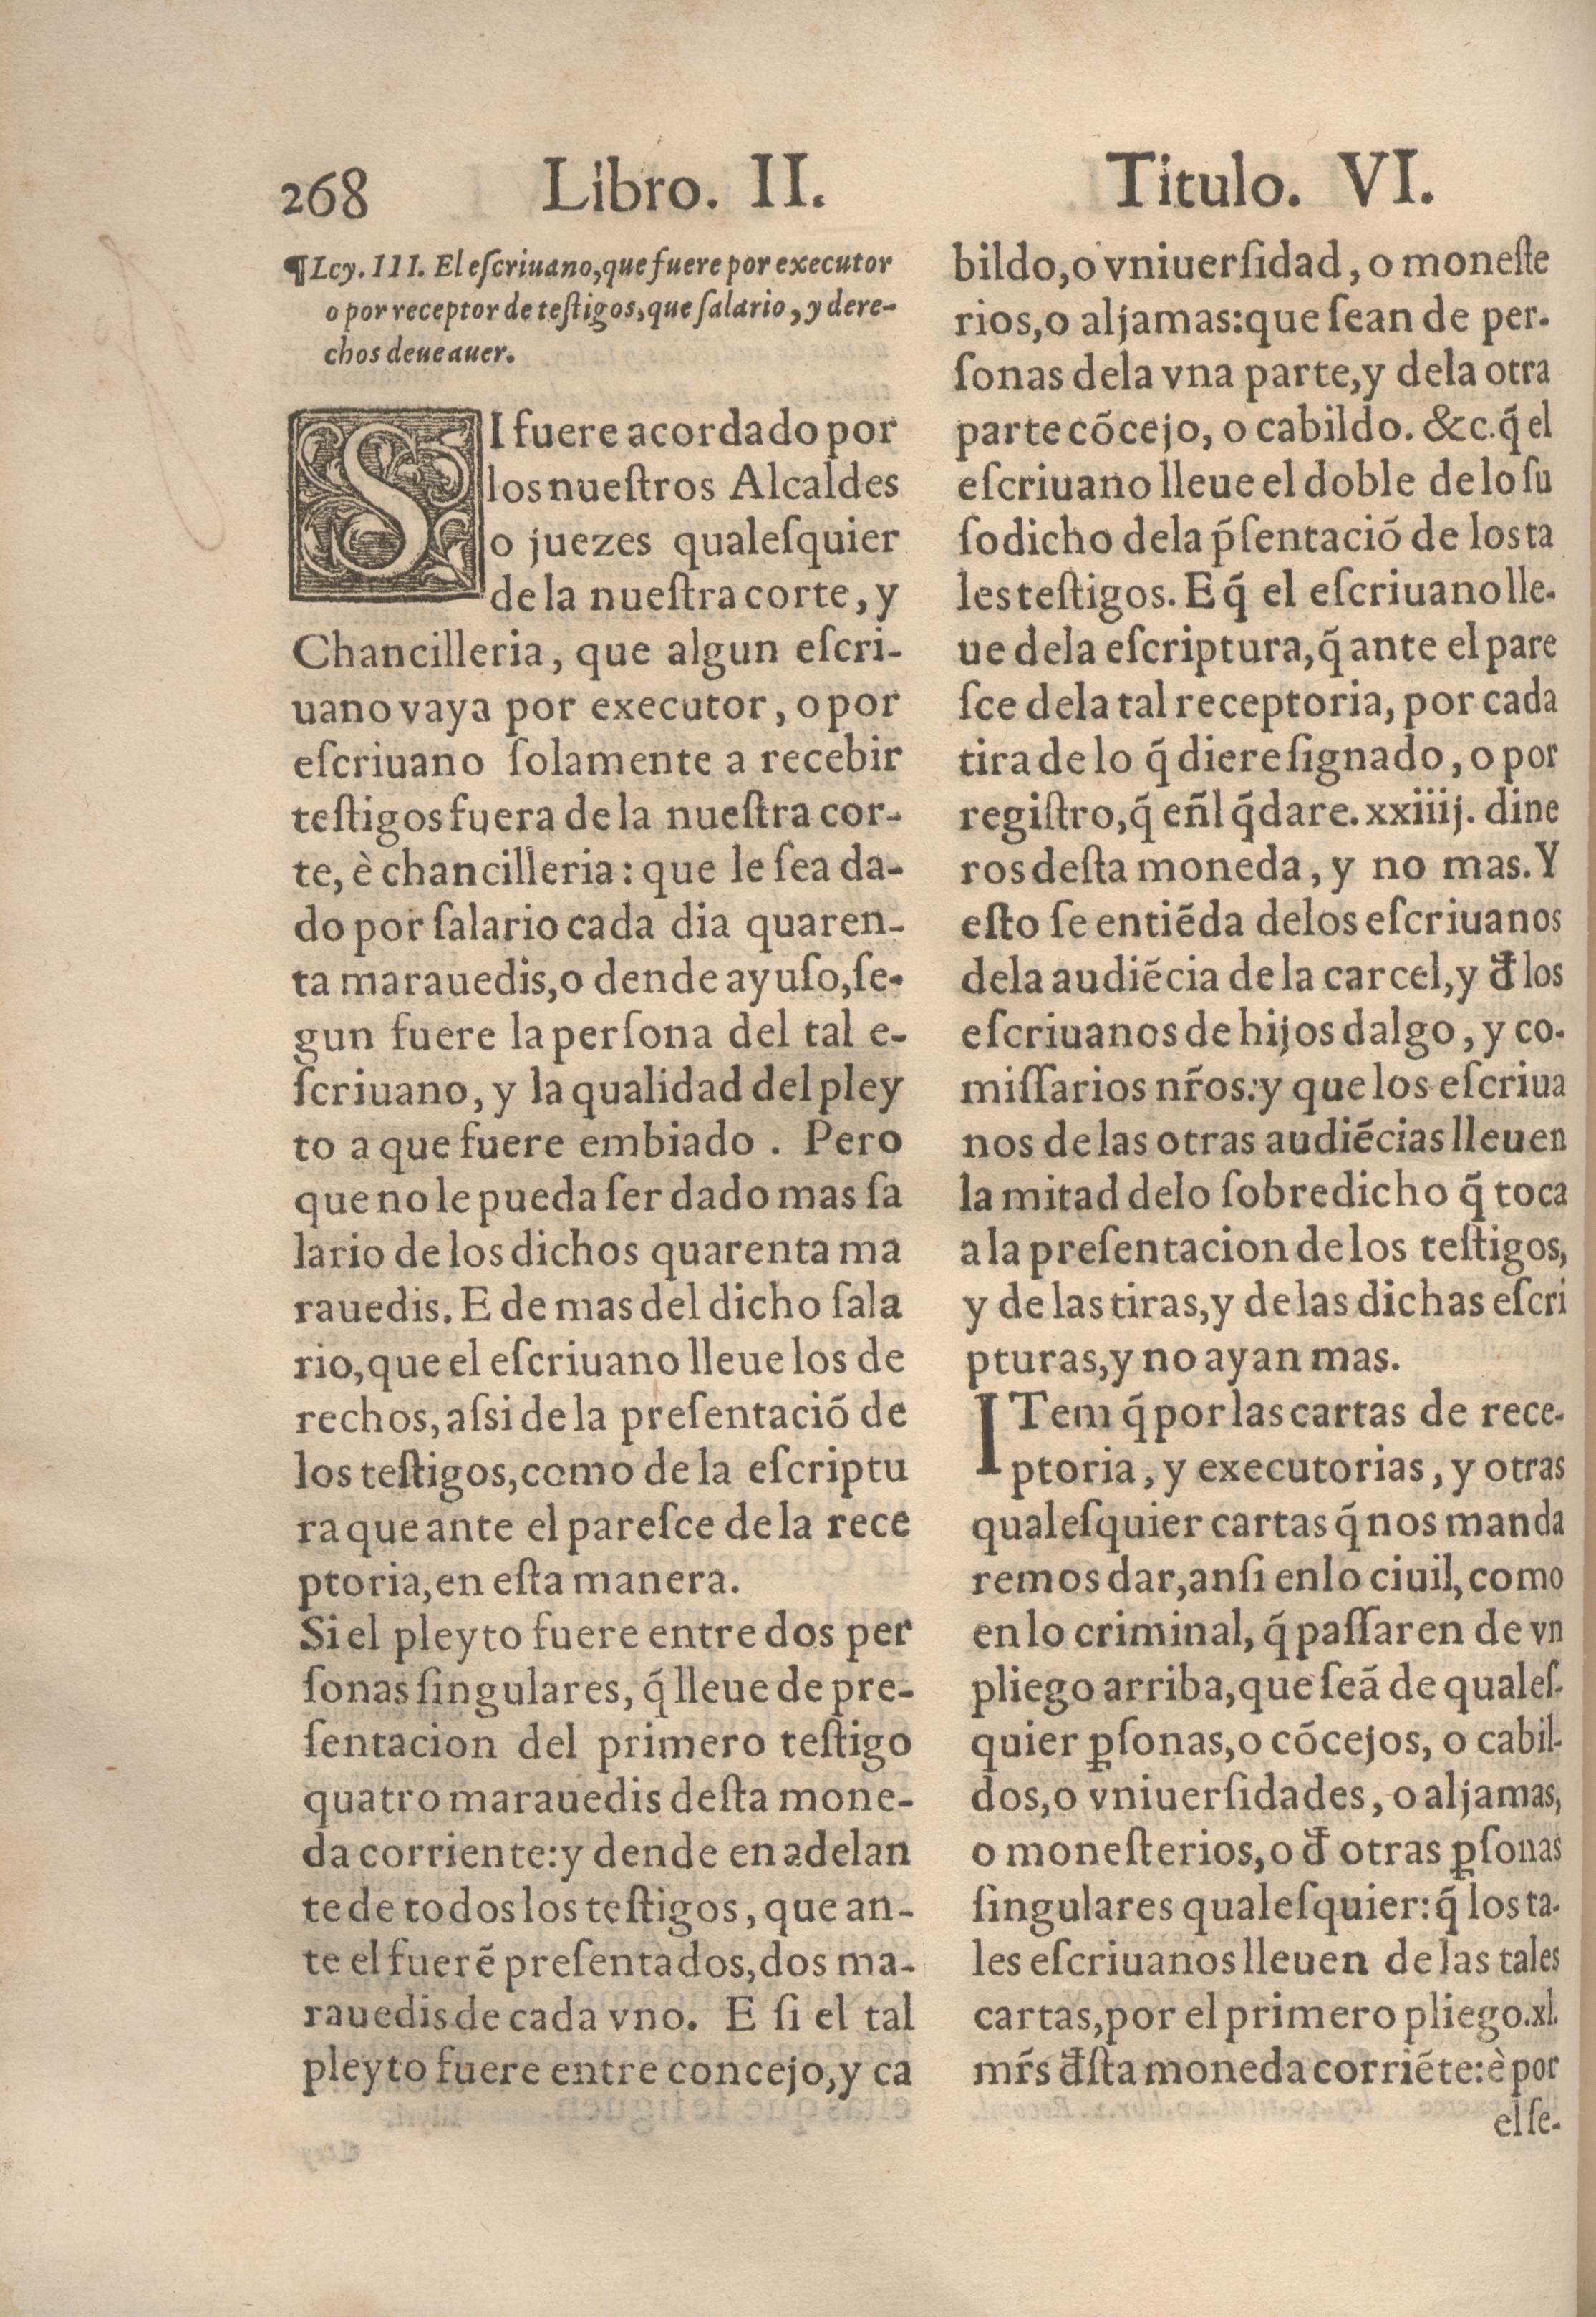 268 Libro. II. Titulo. VI.
¶Ley. III. El eſcriuano, que fuere por executor
o por receptor de teſtigos, que ſalario, y dere-
chos deue auer.
SI fuere acordado por
los nueſtros Alcaldes
o juezes qualeſquier
de la nueſtra corte, y
Chancilleria, que algun eſcri-
uano vaya por executor, o por
eſcriuano ſolamente a recebir
teſtigos fuera de la nueſtra cor-
te, è chancilleria: que le ſea da-
do por ſalario cada dia quaren-
ta marauedis, o dende ayuſo, ſe-
gun fuere la perſona del tal e-
ſcriuano, y la qualidad del pley
to a que fuere embiado . Pero
que no le pueda ſer dado mas ſa
lario de los dichos quarenta ma
rauedis. E de mas del dicho ſala
rio, que el eſcriuano lleue los de
rechos, aſsi de la preſentaciõ de
los teſtigos, como de la eſcriptu
ra que ante el pareſce de la rece
ptoria, en eſta manera.
Si el pleyto fuere entre dos per
ſonas ſingulares, q̃ lleue de pre-
ſentacion del primero teſtigo
quatro marauedis deſta mone-
da corriente: y dende en adelan
te de todos los teſtigos, que an-
te el fuerẽ preſentados, dos ma-
rauedis de cada vno. E ſi el tal
pleyto fuere entre concejo, y ca
bildo, o vniuerſidad, o moneſte
rios, o aljamas: que ſean de per-
ſonas dela vna parte, y dela otra
parte cõcejo, o cabildo. &c. q̃ el
eſcriuano lleue el doble de lo ſu
ſodicho dela p̃ſentaciõ de los ta
les teſtigos. E q̃ el eſcriuano lle-
ue dela eſcriptura, q̃ ante el pare
ſce dela tal receptoria, por cada
tira de lo q̃ diere ſignado, o por
regiſtro, q̃ eñl q̃dare. xxiiij. dine
ros deſta moneda, y no mas. Y
eſto ſe entiẽda delos eſcriuanos
dela audiẽcia de la carcel, y đ los
eſcriuanos de hijos dalgo, y co-
miſſarios nr̃os: y que los eſcriua
nos de las otras audiẽcias lleuen
la mitad delo ſobredicho q̃ toca
a la preſentacion de los teſtigos,
y de las tiras, y de las dichas eſcri
pturas, y no ayan mas.
ITem q̃ por las cartas de rece-
ptoria, y executorias, y otras
qualeſquier cartas q̃ nos manda
remos dar, anſi enlo ciuil, como
en lo criminal, q̃ paſſaren de vn
pliego arriba, que ſeã de qualeſ-
quier ꝑſonas, o cõcejos, o cabil-
dos, o vniuerſidades, o aljamas,
o moneſterios, o đ otras ꝑſonas
ſingulares qualeſquier: q̃ los ta-
les eſcriuanos lleuen de las tales
cartas, por el primero pliego. xl.
mr̃s đſta moneda corriẽte: è por
el ſe-